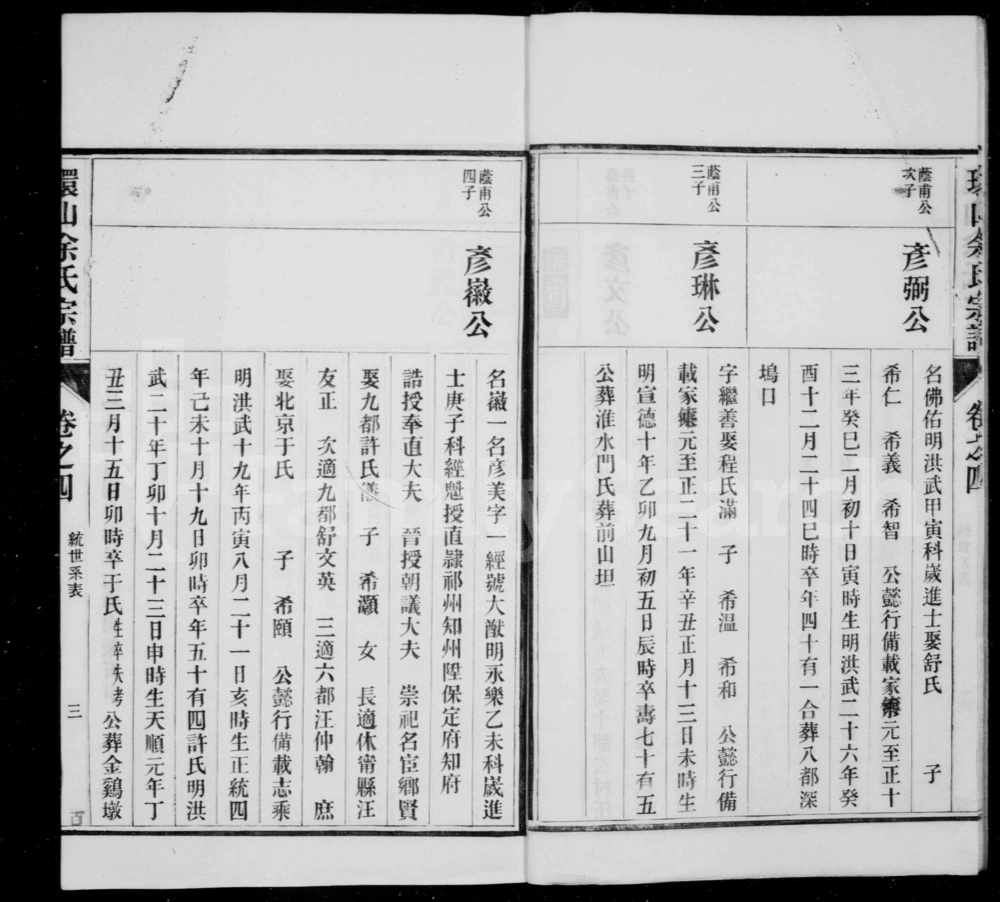 環山余氏宗譜
卷之四
蔭甫公
次子
彥弼公
名佛佑明洪武甲寅科歲進士娶舒氏 子
希仁 希義 希智 公懿行備載家乘元至正十
三年癸巳二月初十日寅時生明洪武二十六年癸
酉十二月二十四巳時卒年四十有一合葬八都深
塢口
蔭甫公
三子
彥琳公
字繼善娶程氏滿 子 希溫 希和 公懿行備
載家乘元至正二十一年辛丑正月十三日未時生
明宣德十年乙卯九月初五日辰時卒壽七十有五
公葬淮水門氏葬前山坦
蔭甫公
四子
彥嶶公
名嶶一名彦美字一經號大猷明永樂乙未科歲進
士庚子科經魁授直隷祁州知州陞保定府知府
誥授奉直大夫 晉授朝議大夫 崇祀名宦鄉賢
娶九都許氏儀 子 希灝 女 長適休甯縣汪
友正 次適九都舒文英 三適六都汪仲翰 庶
娶北京于氏 子 希頤 公懿行備載志乘
明洪武十九年丙寅八月二十一日亥時生正統四
年己未十月十九日卯時卒年五十有四許氏明洪
武二十年丁卯十月二十三日申時生天順元年丁
丑三月十五日卯時卒于氏生卒失考公葬金鷄墩
環山余氏宗譜
卷之四
統世系表
三
百